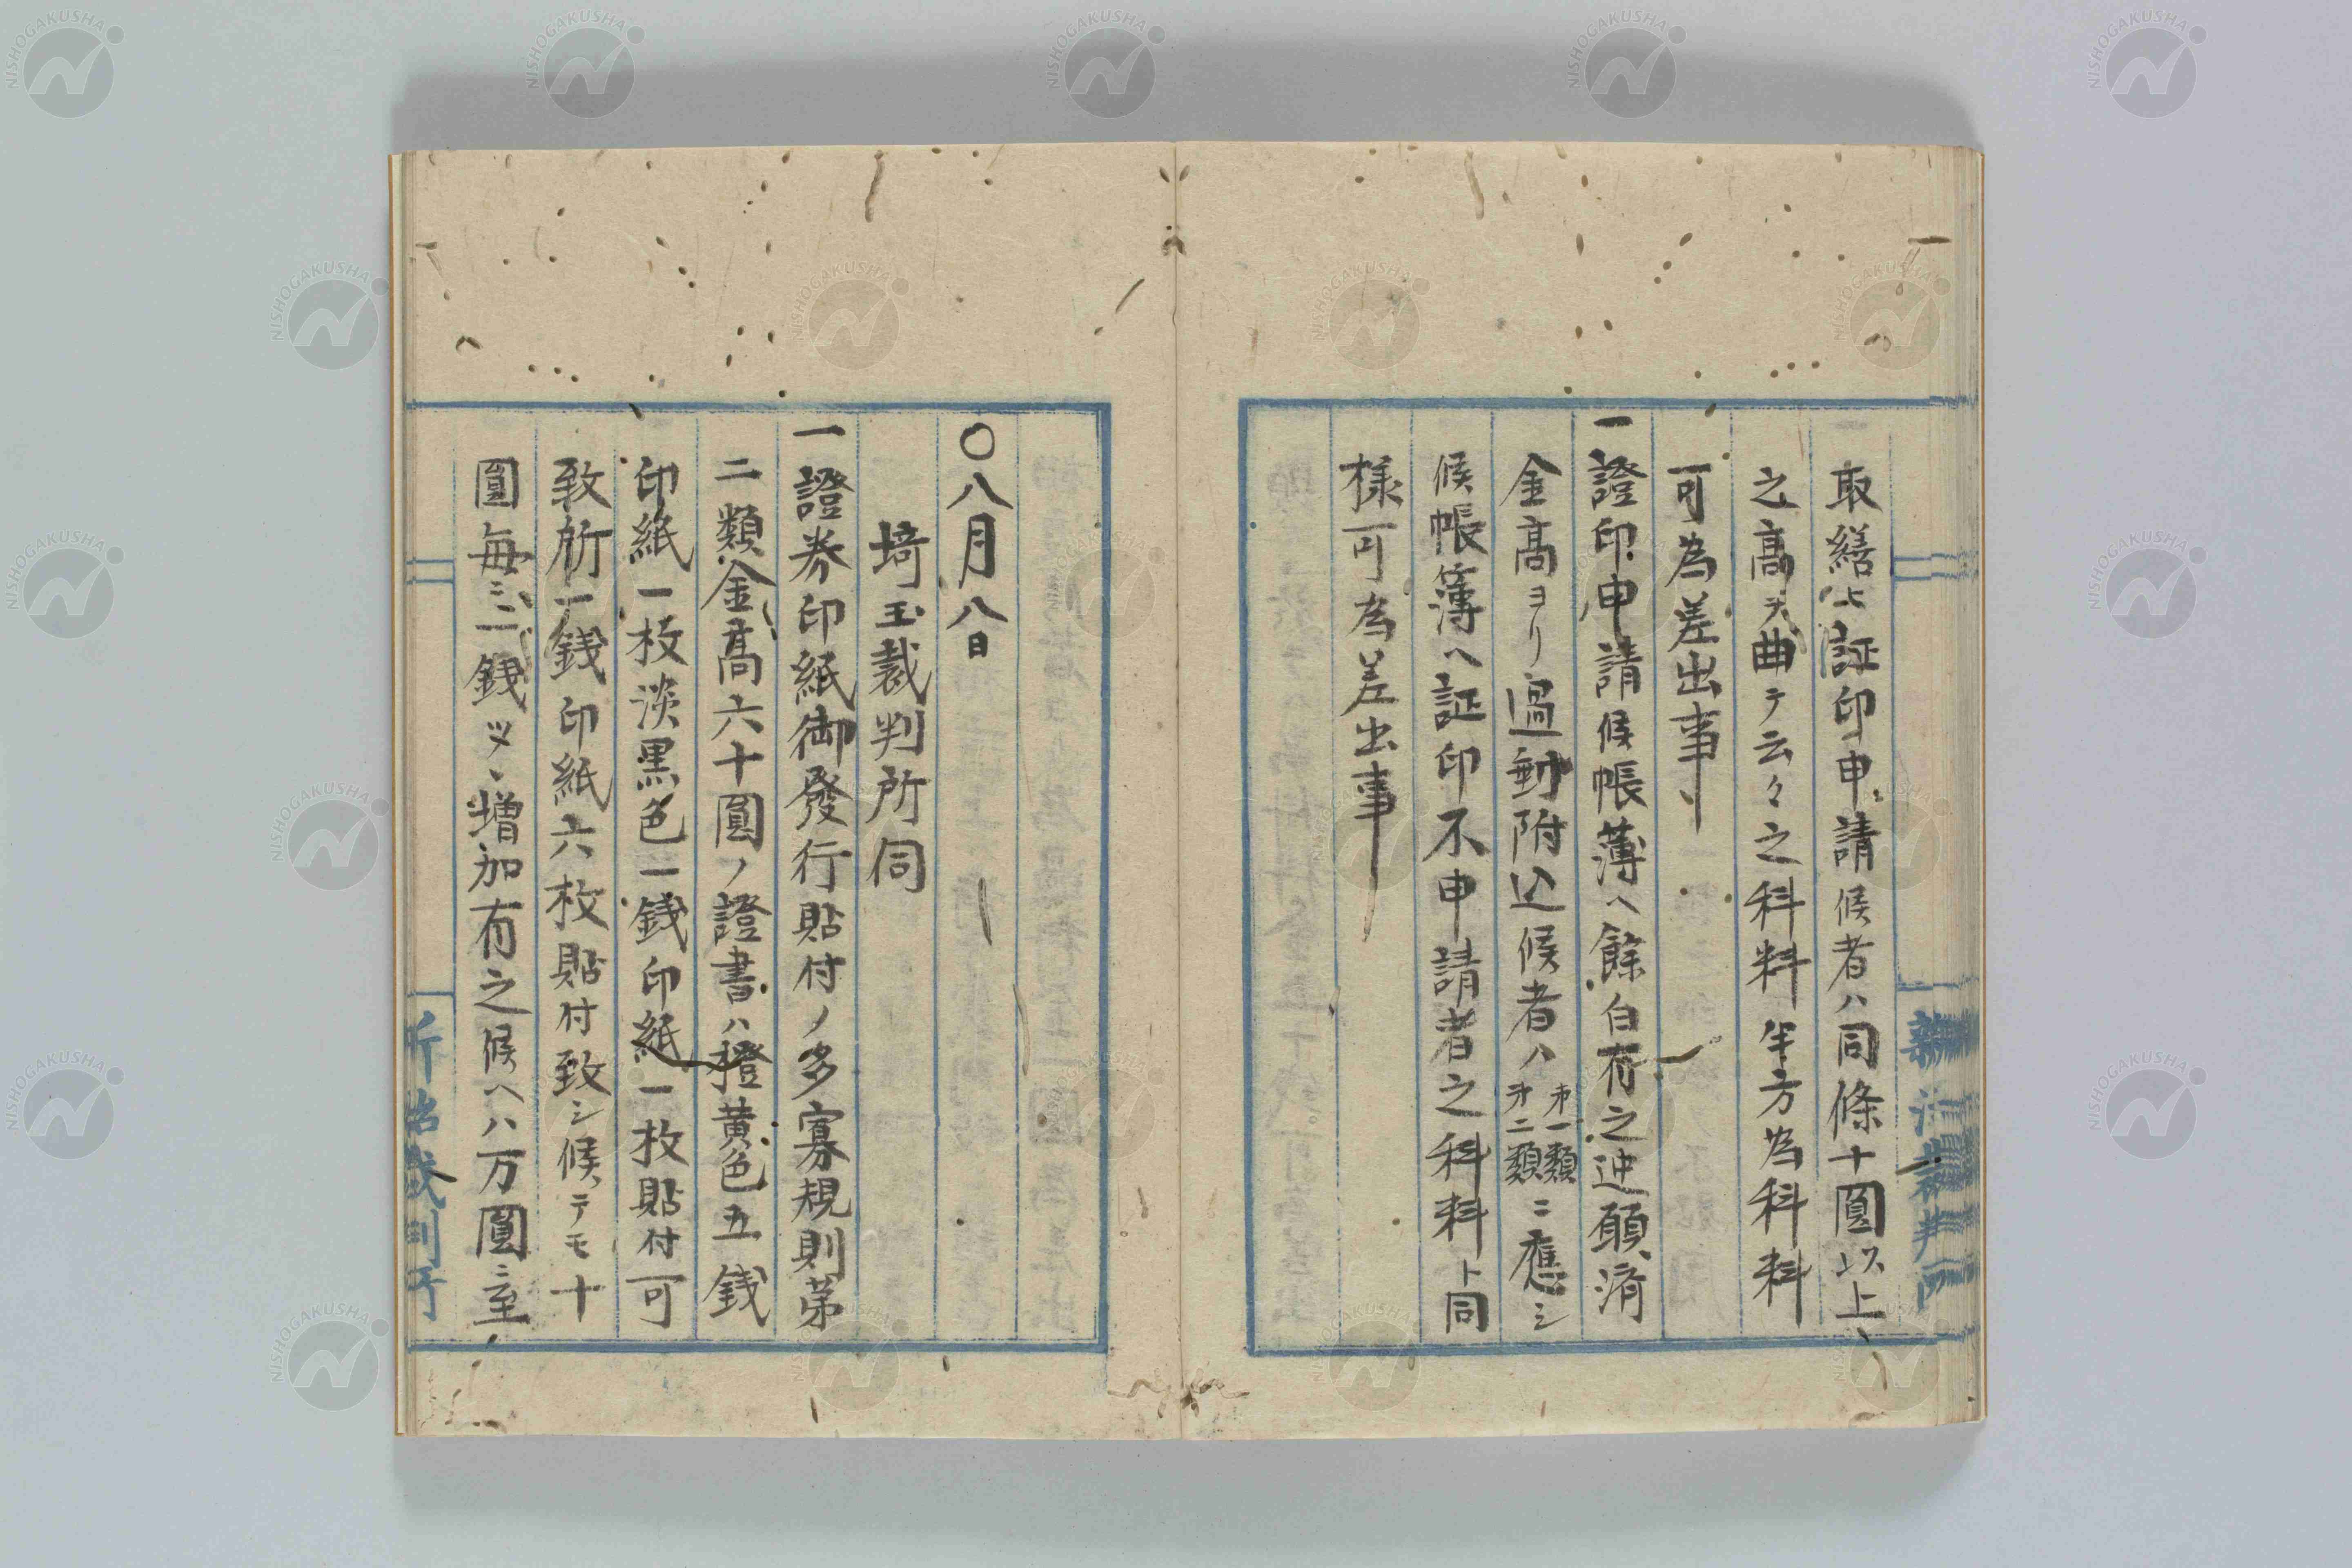 取繕ヒ証印申請候者ハ同條十圓以上
之高ヲ曲テ云々之科料半方為科料
可為差出事
一證印申請候帳薄ヘ餘白有之迚願濟
金高ヨリ過剰附込候者ハ才一類才二類ニ應シ
候帳簿ヘ証印不申請者之科料ト同
様可為差出事
〇八月八日
埼玉裁判所伺
一證券印紙御發行貼付ノ多寡規則第
二類金高六十圓ノ證書ハ橙黄色五銭
印紙一枚淡黒色一銭印紙一枚貼付可
致所一銭印紙六枚貼付致シ候テモ十
圓毎ニ二銭ツヽ増加有之候ヘハ万圓ニ至